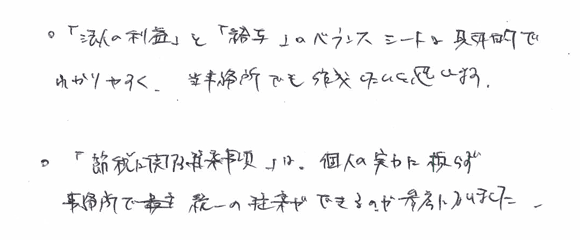 。「法人の利益」と「給与」のバランスシートは具体的で
わかりやすく、当事務所でも強く使いたいと思います。
。「節税に関する提案事項」は、個人の実力に頼らず
事務所で統一の提案ができるのが参考になりました。